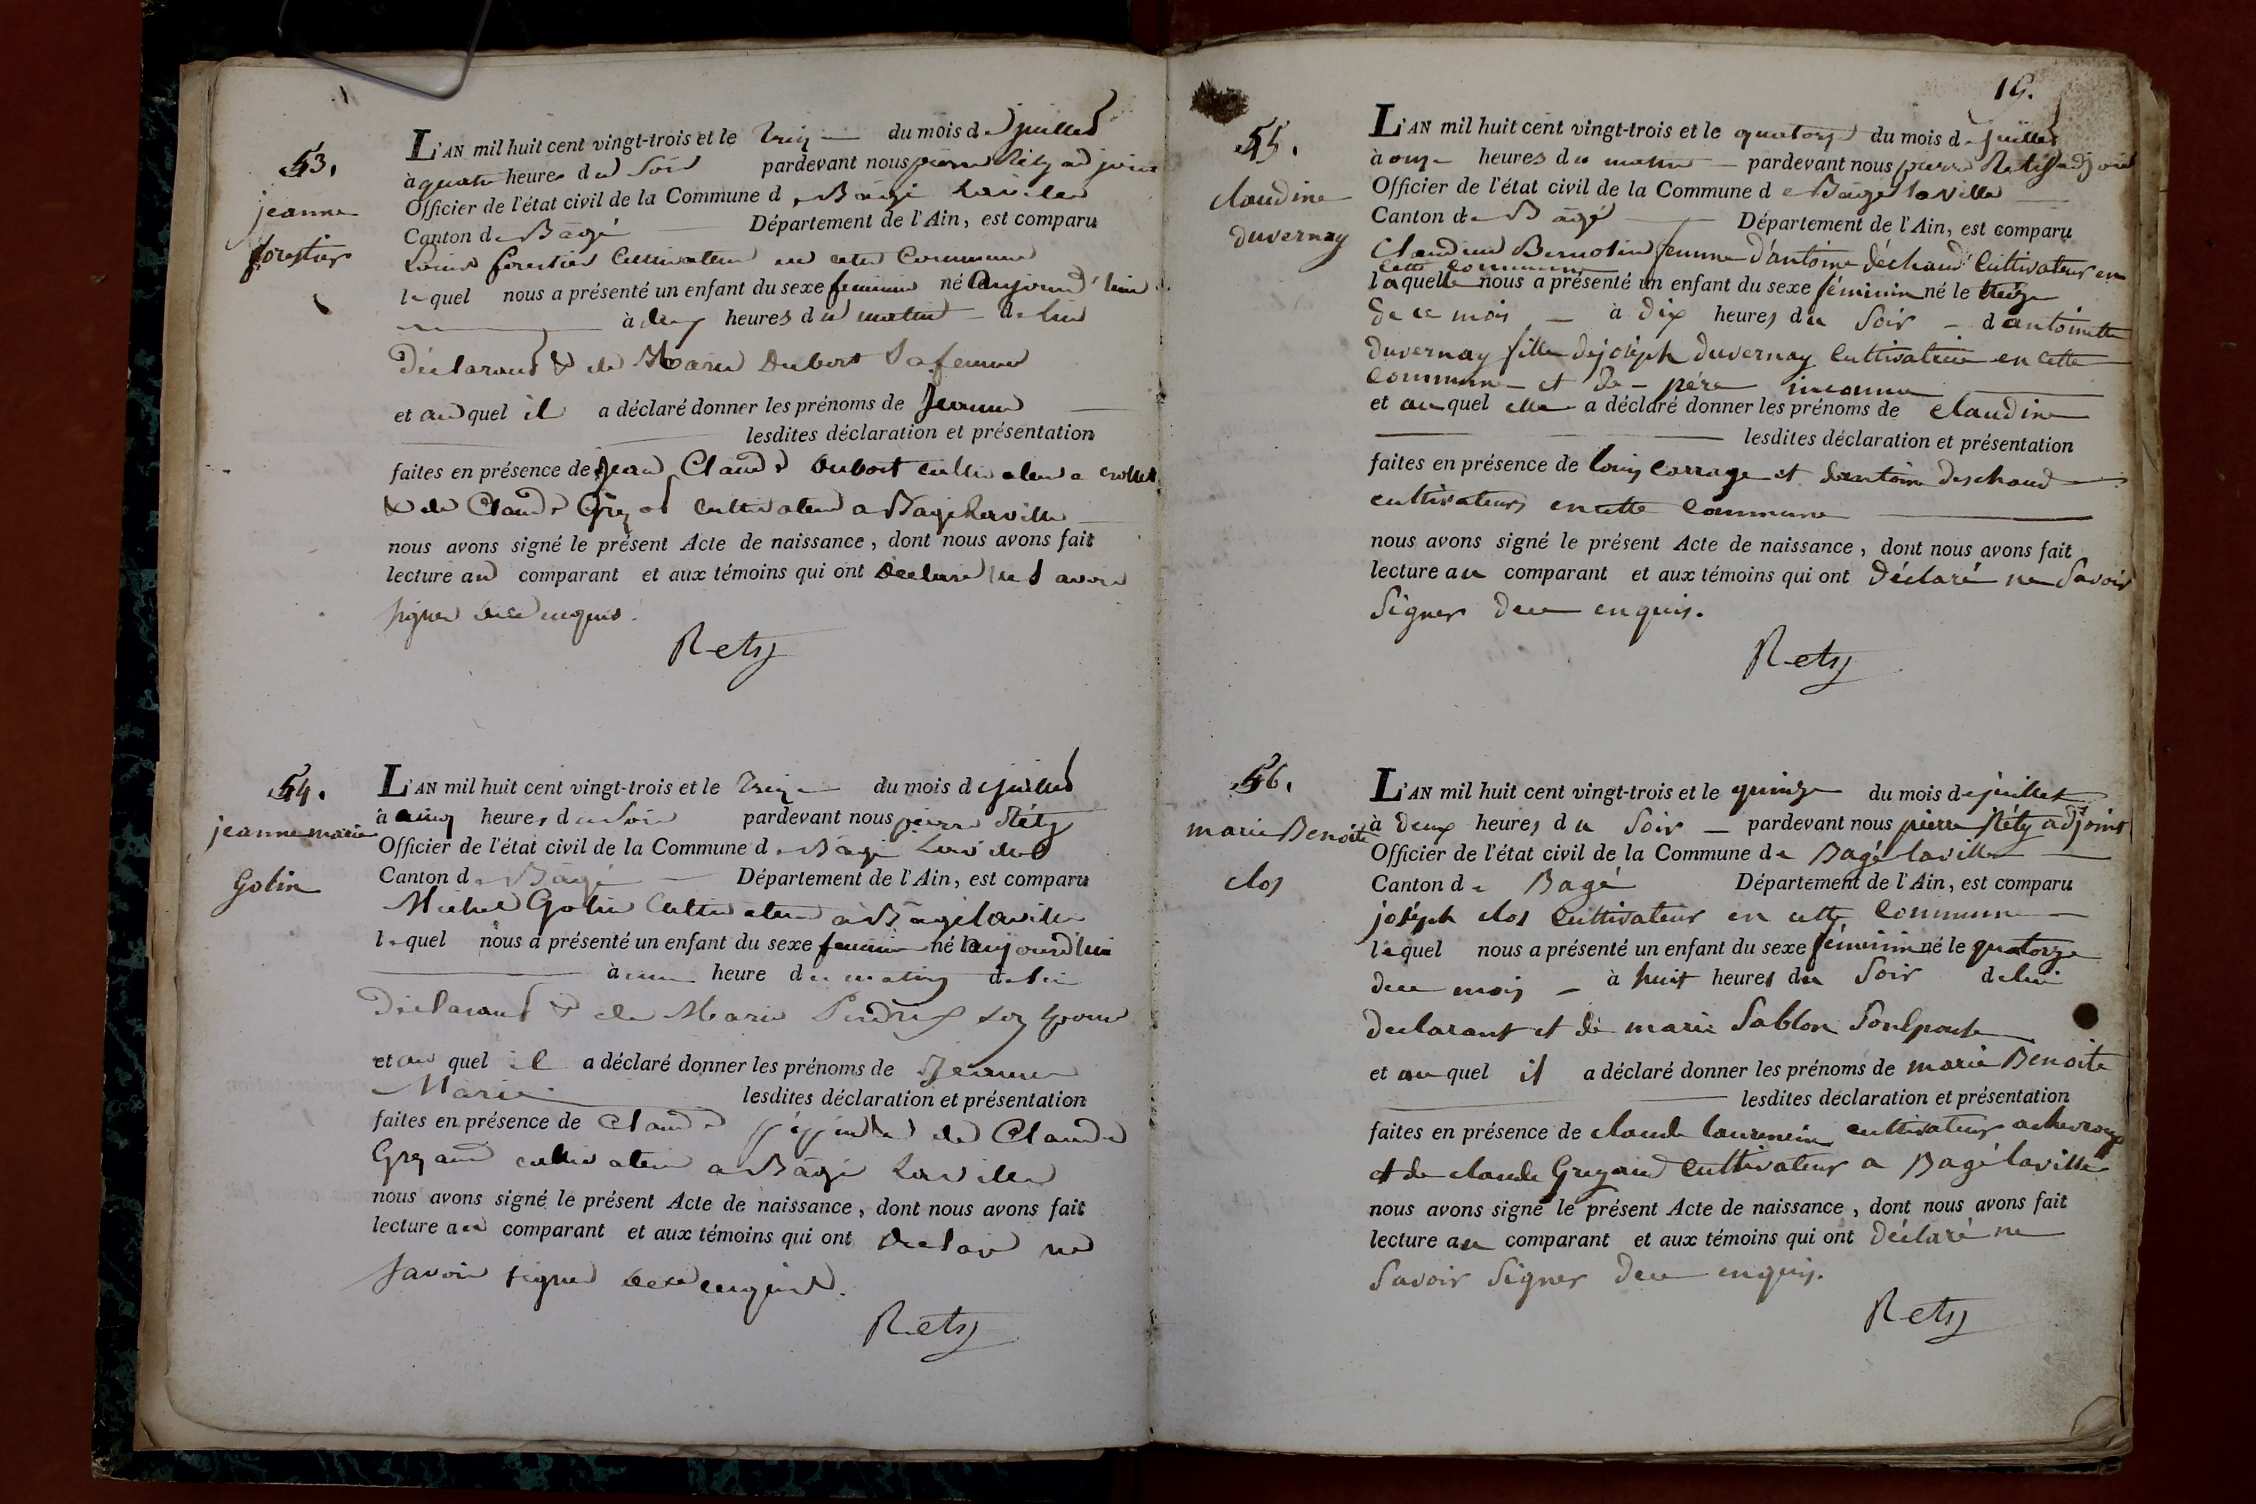 53.
jeanne
forestier
L'AN mil huit cent vingt-trois et le treize du mois de juillet
à quatre heures du soir pardevant nous pierre Réty adjoint
Officier de l'état civil de la Commune de Bâgé Laville
Canton de Bâgé Département de l'Ain, est comparu
Louis forestier Cultivateur en cette Commune
lequel nous a présenté un enfant du sexe feminin né aujourd'hui
à deux heures du matin de lui
Déclarant & de Marie Dubost sa femme
et auquel il a déclaré donner les prénoms de Jeanne
lesdites déclaration et présentation
faites en présence de Jean Claude Dubost cultivateur a crottet
& de Claude Cultivateur a Bagé Laville
nous avons signé le présent Acte de naissance, dont nous avons fait
lecture au comparant et aux témoins qui ont Declaré ne Savoir
signer de ce enquis.
Rety
54.
jeanne marie
Golin
L'AN mil huit cent vingt-trois et le treize du mois de juillet
à cinq heures du Soir pardevant nous pierre Réty
Officier de l'état civil de la Commune de Bâgé Laville
Canton de Bâgé Département de l'Ain, est comparu
Michel Golin Cultivateur à Bâgé laville
lequel nous a présenté un enfant du sexe feminin né aujourd'hui
à une heure du matin de lui
Déclarant & de Marie Perdrix son Epouse
et au quel il a déclaré donner les prénoms de Jeanne
Marie lesdites déclaration et présentation
faites en présence de Claude de Claude
Greyaud cultivateur a Bâgé Laville
nous avons signé le présent Acte de naissance, dont nous avons fait
lecture au comparant et aux témoins qui ont Declaré ne
savoir signer de ce enquis.
Rety
15.
55.
claudine
duvernay
L'AN mil huit cent vingt-trois et le quatorze du mois de juillet
à onze heures du matin pardevant nous pierre Réty adjoint
Officier de l'état civil de la Commune de Bâgé laville
Canton de Bâgé Département de l'Ain, est comparu
Claudine Bernolin femme d'antoine déchaud Cultivateur en
cette commune
laquelle nous a présenté un enfant du sexe féminin né le treize
de ce mois à dix heures du Soir d'antoinette
duvernay fille de joseph duvernay Cultivatrice en cette
commune et de père inconnu
et auquel elle a déclaré donner les prénoms de claudine
lesdites déclaration et présentation
faites en présence de louis Carrage et d'antoine deschaud
cultivateurs en cette Commune
nous avons signé le présent Acte de naissance, dont nous avons fait
lecture au comparant et aux témoins qui ont déclaré ne Savoir
Signer de ce enquis.
Rety
56.
marie Benoite
clos
L'AN mil huit cent vingt-trois et le quinze du mois de juillet
à deux heures du Soir pardevant nous pierre Réty adjoint
Officier de l'état civil de la Commune de Bagé laville
Canton de Bagé Département de l'Ain, est comparu
joséph clos Cultivateur en cette Commune
lequel nous a présenté un enfant du sexe féminin né le quatorze
de ce mois à huit heures du Soir de lui
declarant et de marie Sablon Son épouse
et auquel il a déclaré donner les prénoms de marie Benoite
lesdites déclaration et présentation
faites en présence de claude laurencin cultivateur a chevroux
et de claude Greyaud Cultivateur a Bagé laville
nous avons signé le présent Acte de naissance, dont nous avons fait
lecture au comparant et aux témoins qui ont déclaré ne
Savoir Signer de ce enquis.
Rety